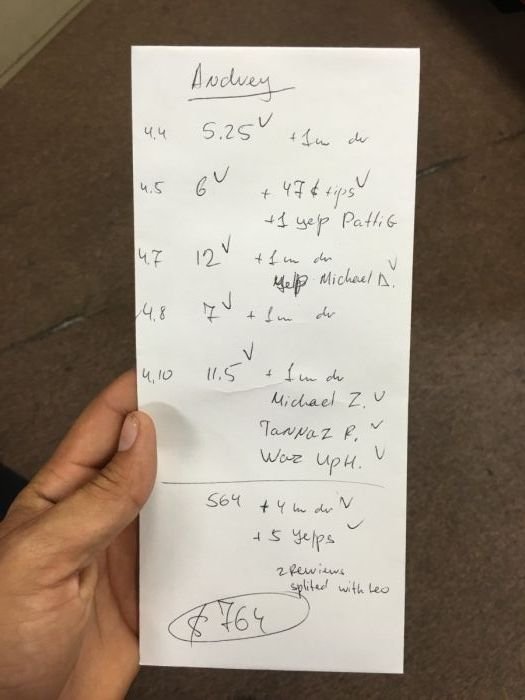 Andrey
4.4 5.25 +1m dr
4.5 6 + 47¢ tips
+1 yelp Patti G
4.7 12 +1m dr
yelp Michael D.
4.8 7 +1m dr
4.10 11.5 +1m dr
Michael Z.
Tannaz R.
Waz Up H.
564 +4m dr
+5 yelps
2 Rewiews
splited with Leo
$764